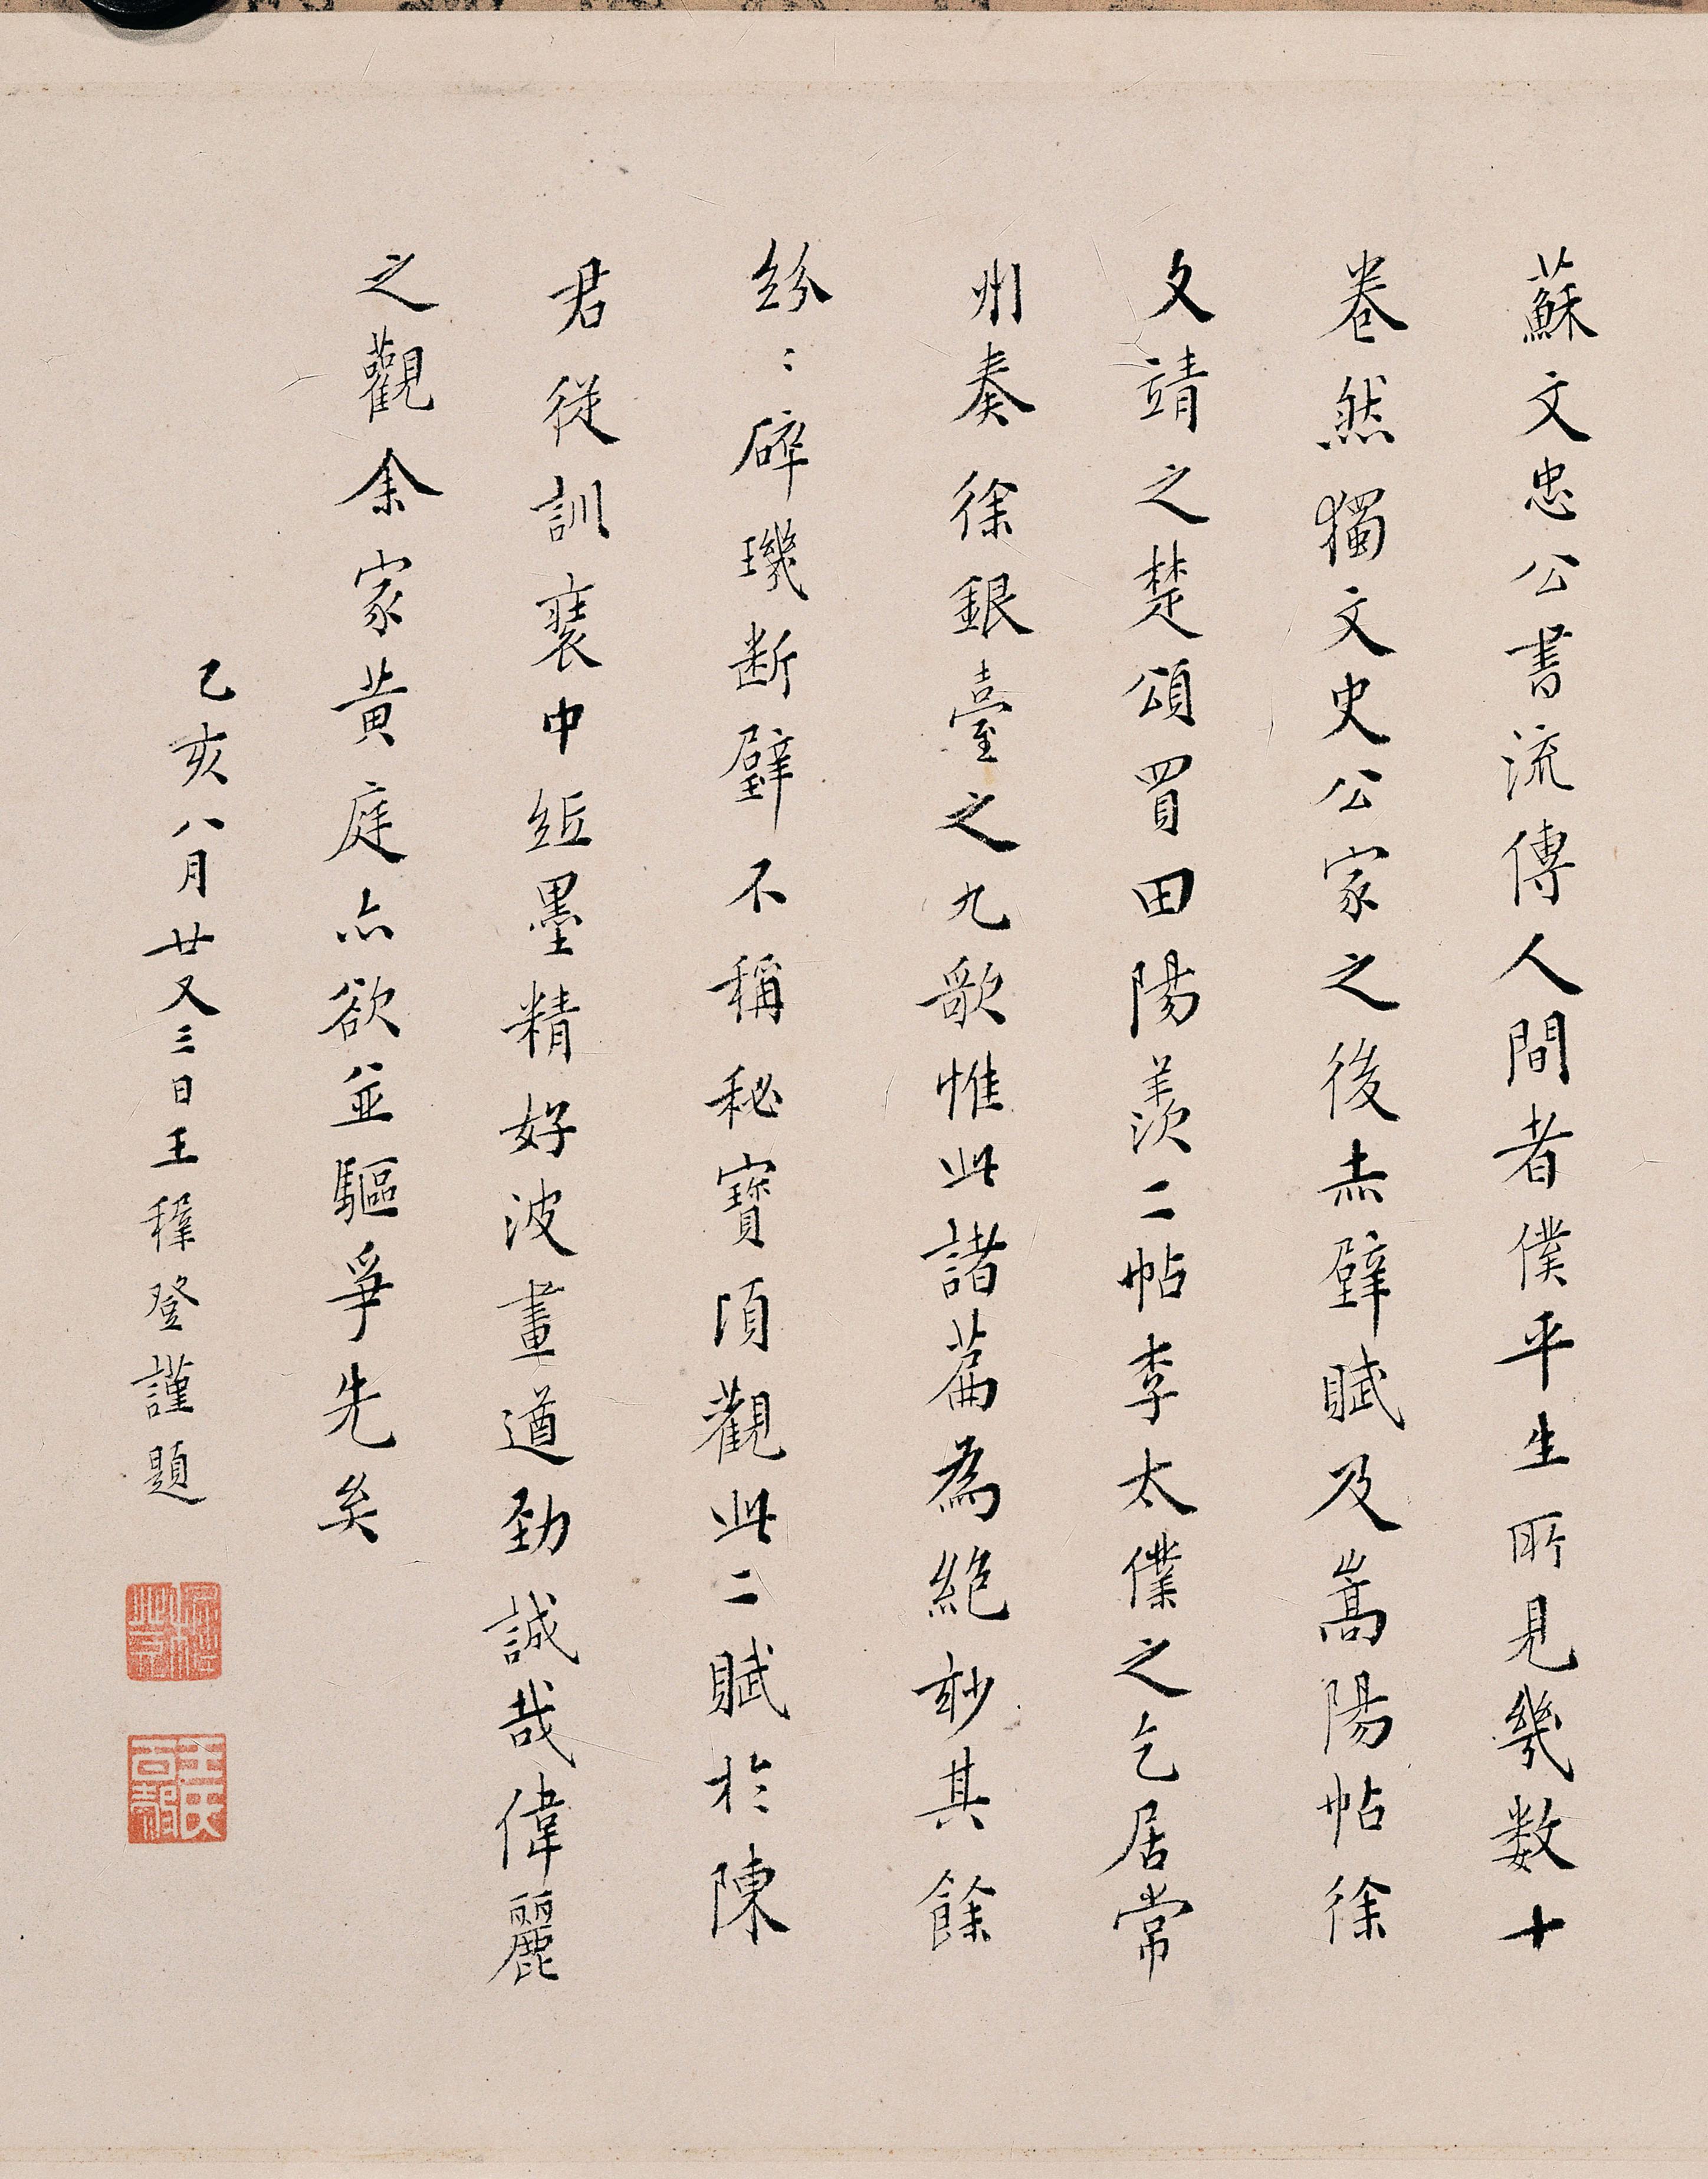 蘇文忠公書流傳人間者僕平生所見幾数十
卷然獨文史公家之後赤壁賦及嵩陽帖徐
文靖之楚頌買田陽羨二帖李太僕之乞居常
州奏徐銀臺之九歌惟此諸篇為絶妙其餘
紛〻碎璣断璧不稱秘寶頃觀此二賦於陳
君從訓裘中紙墨精好波畫遒勁誠哉偉麗
之觀余家黄庭亦欲並驅爭先矣
己亥八月廿又三日王穉登謹題
王氏百穀